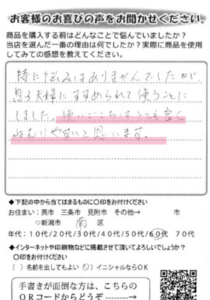 お客様のお喜びの声をお聞かせください。
商品を購入する前はどんなことで悩んでいましたか？
当店を選んだ一番の理由は何でしたか？実際に商品を使用
してみての感想を教えてください。
特に悩みはありませんでしたが、
息子夫婦にすすめられて使うことに
しました。使いごこちはとても良く
ねむりやすいと思います。
◆下記の中から当てはまるものに○印をお付けください
お住まい：燕市 三条市 見附市 その他→ 市
◇新潟市 南 区
年代：10代/20代/30代/40代/50代/60代 70代
◆インターネットや印刷物などに掲載させて頂いてよろしいでしょうか？
○印をお付けください
( )名前を出してもよい (○)イニシャルならOK
手書きが面倒な方は、こちらの
QRコードからどうぞ